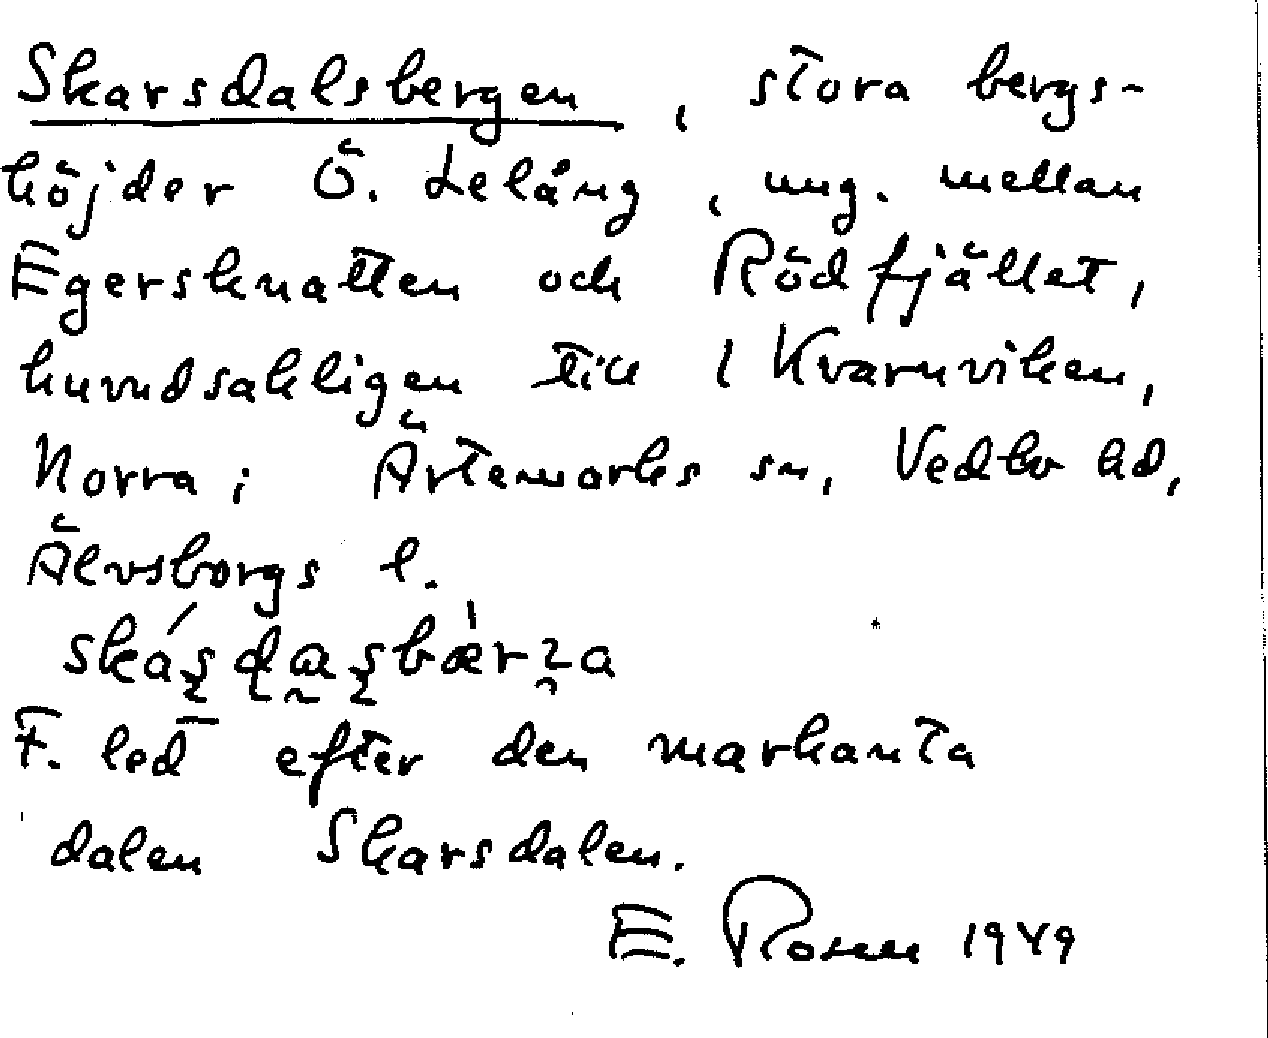 Skarsdalsbergen, stora bergs-
höjder Ö. Lelång, ung. mellan
Egersknatten och Rödfjället,
huvudsakligen till l Kvarnviken,
Norra; Ärtemarks sn, Vedbo hd,
Älvsborgs l.
F. led efter den markanta
dalen Skarsdalen.
E. Rosell 1949